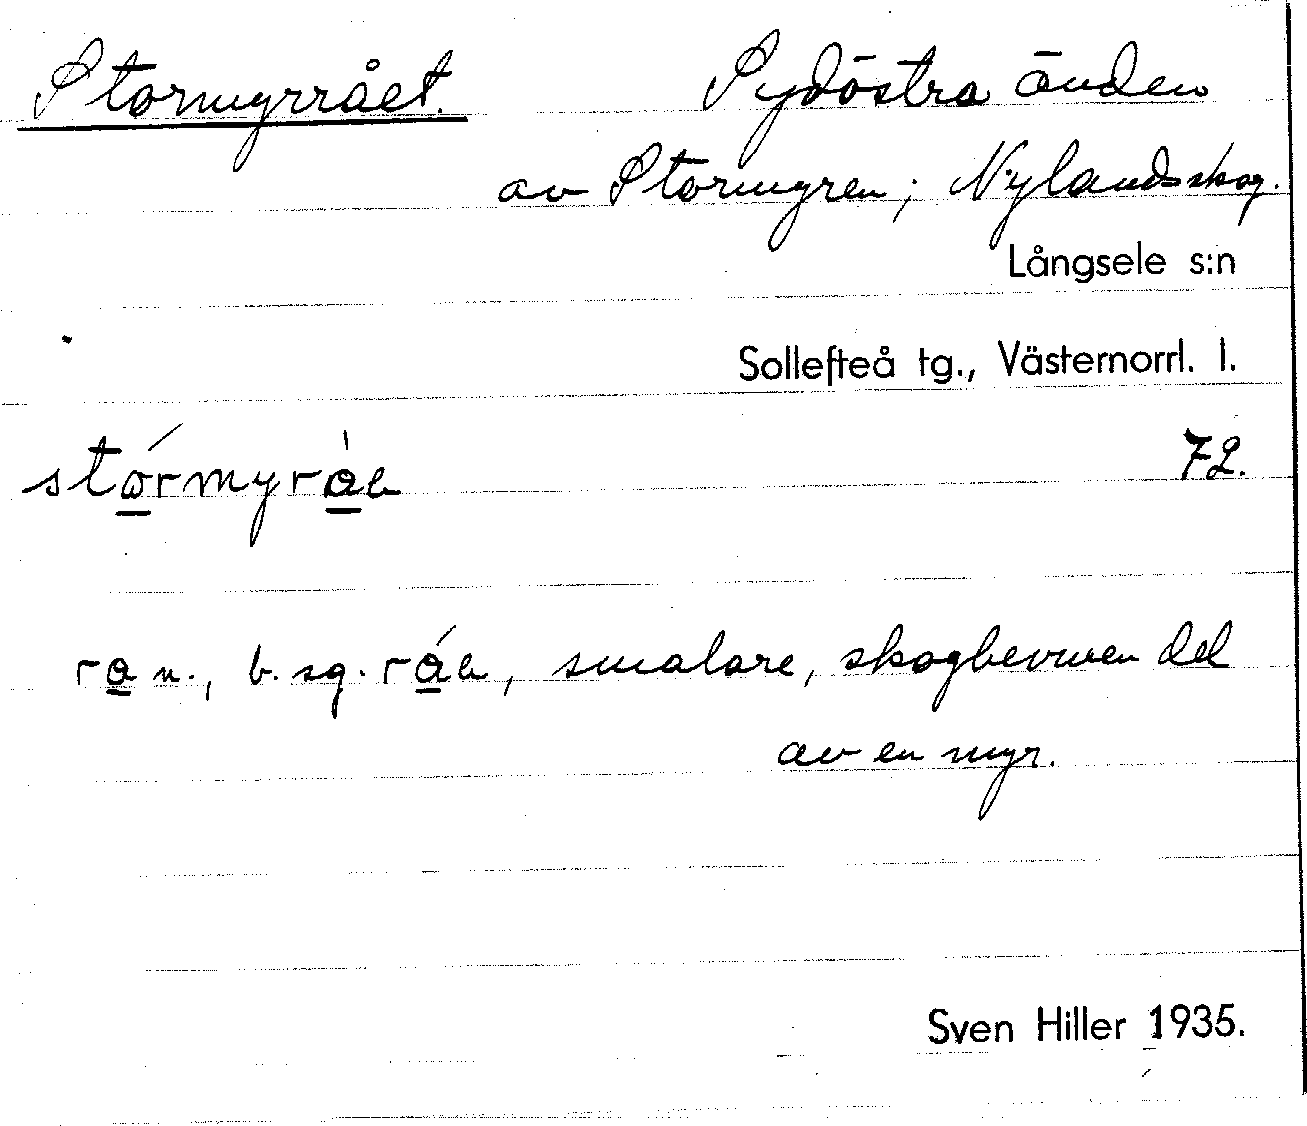 Stormyrrået. Sydöstra änden
av Stormyren; Nylandsskog.
Långsele s:n
Sollefteå tg., Västernorrl. l.
72.
n., b. sg. smalare, skogbevuxen del
av en myr.
Sven Hiller 1935.